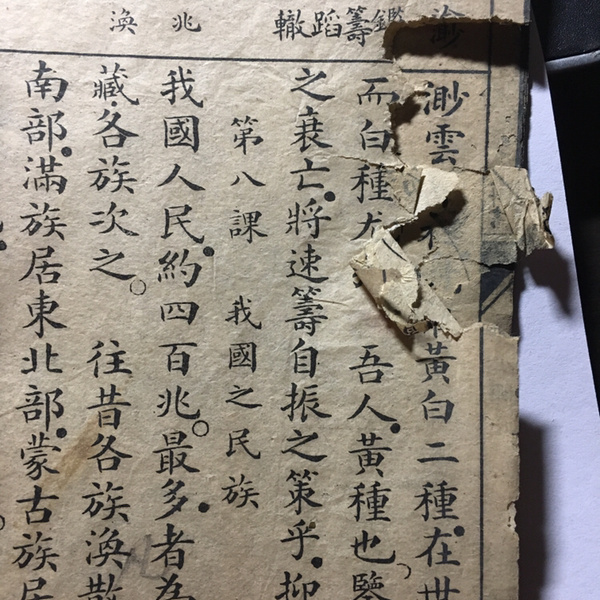 渺 鑑 籌 蹈 轍 兆 渙
渺雲 黃白二種、在世
而白種尤 吾人、黃種也。鑒
之衰亡、將速籌自振之策乎、抑
第八課 我國之民族
我國人民、約四百兆。最多、者為
藏、各族次之。 往昔各族渙散
南部、滿族居東北部、蒙古族居